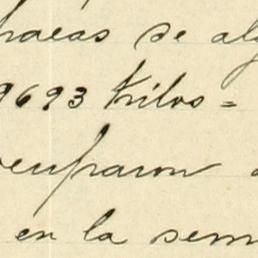 pacas de alg
9693 Kilos =
ocuparon
en la sem